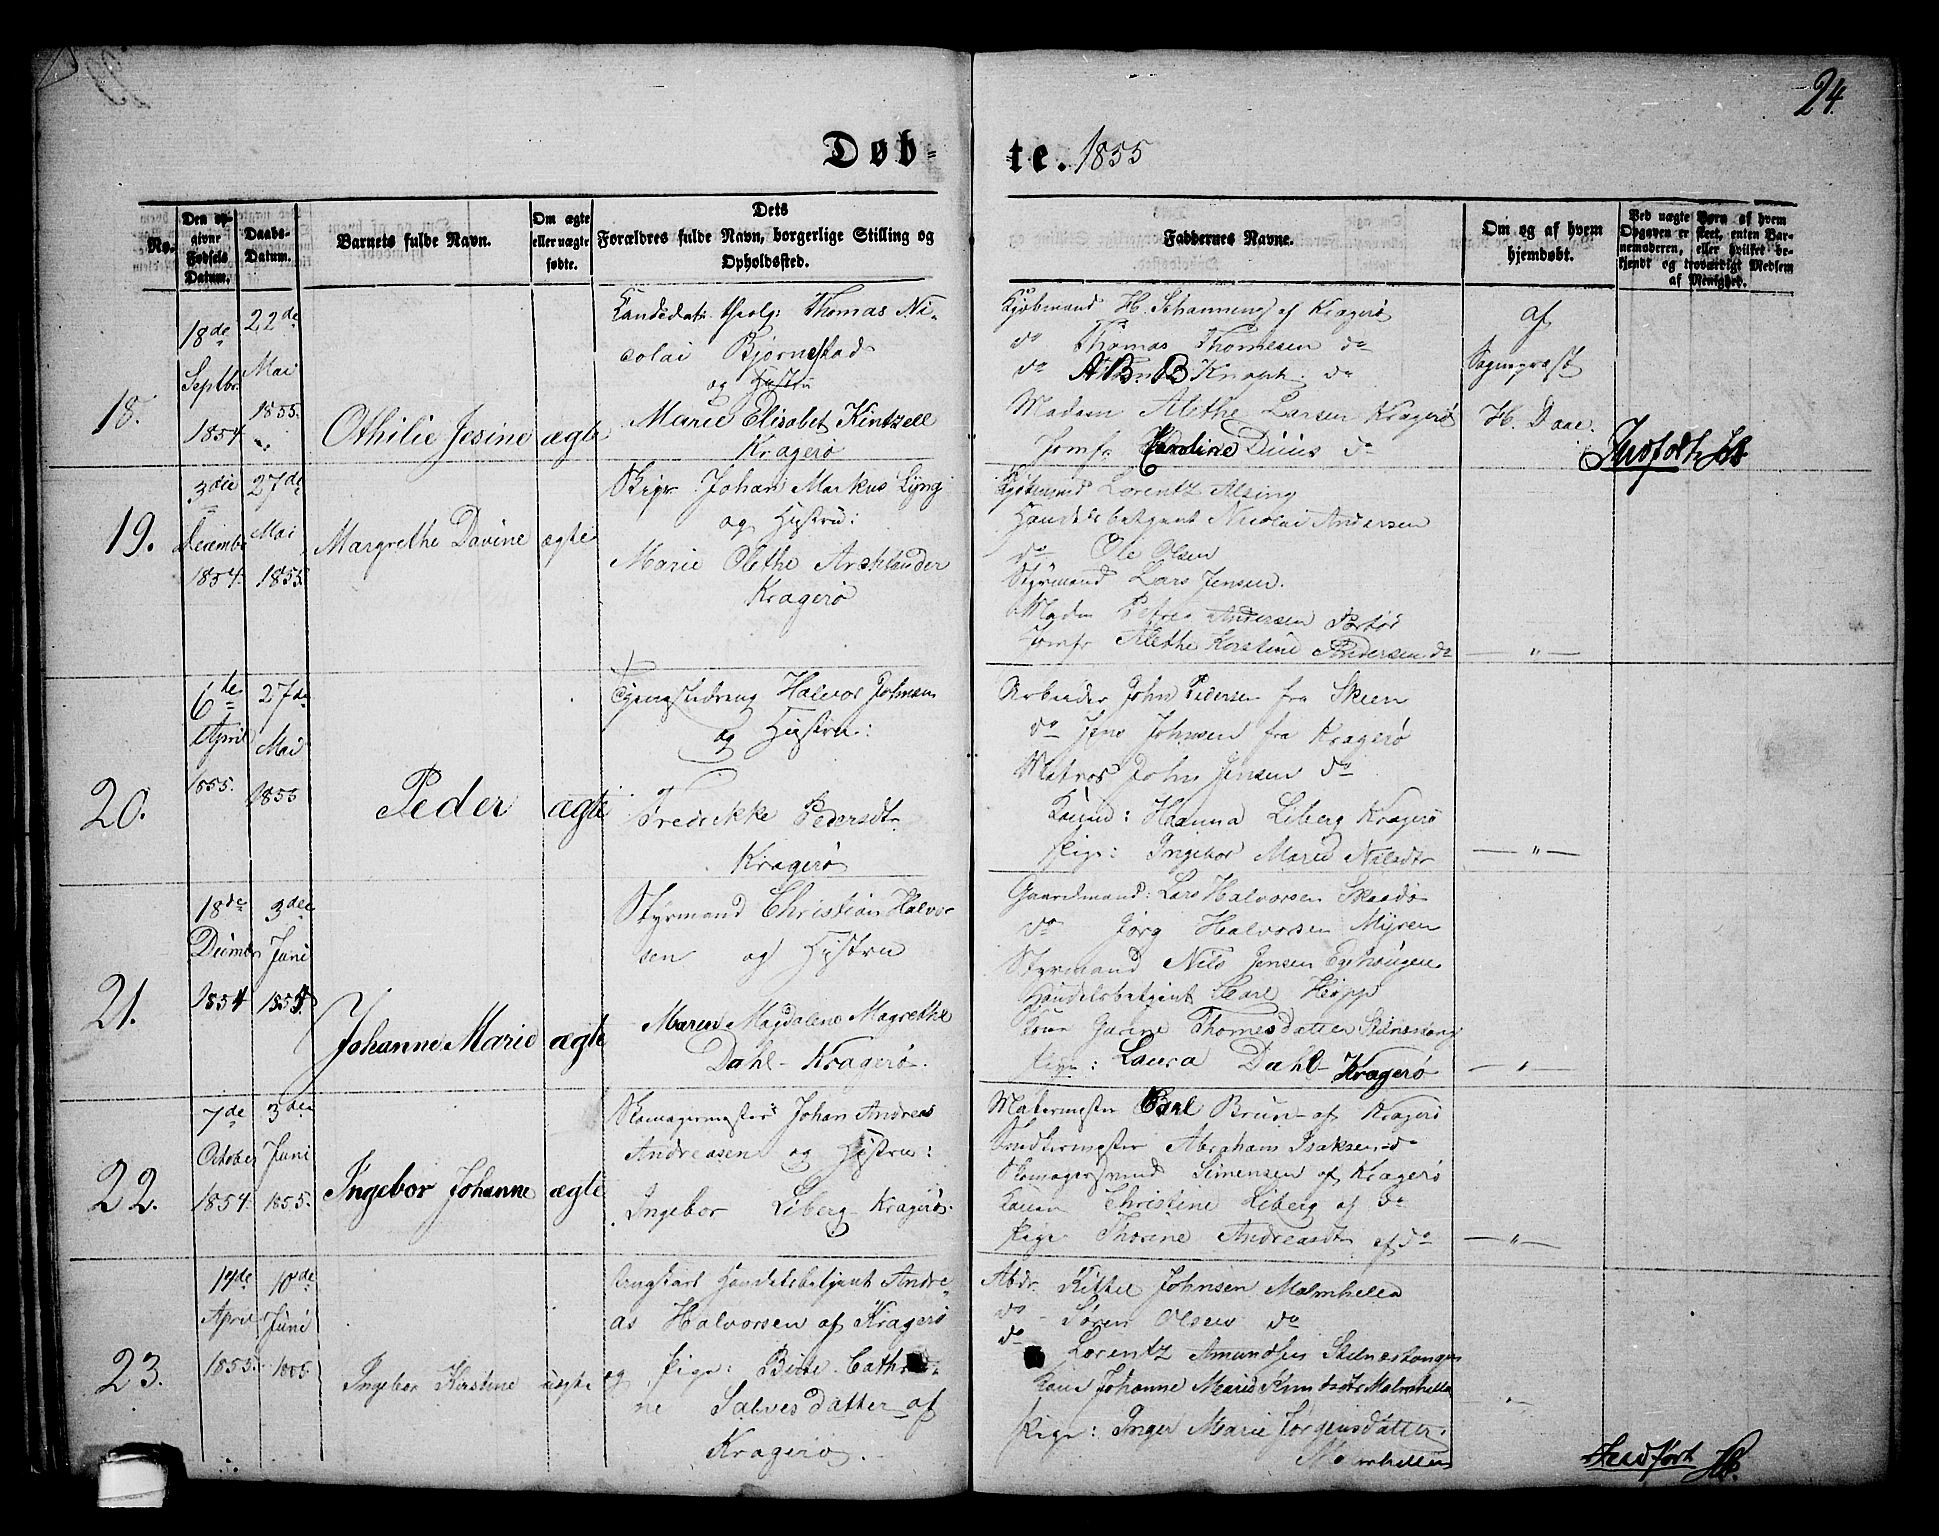 24.
Døb-
te. 1855
No.
Den op-
givne
Fødsels
Datum.
Daabs-
Datum.
Barnets fulde Navn.
Om ægte
eller uægte
fødte.
Dets
Forældres fulde Navn, borgerlige Stilling og
Opholdssted.
Faddernes Navne.
Om og af hvem
hjemdøbt.
Ved uægte Børn af hvem
Opgaven er skeet, enten Bar-
nemoderen, eller hvilket be-
kjendt og troværdigt Medlem
af Menighed.
18.
18de
Septbr
1854
22de
Mai
1855
Othilie Jesine
ægte
Kandidat: theolg: Thomas Ni-
colai Bjørnstad
og Hustru
Marie Elisabet Kintzell
Kragerø
Kjøbmand H. Schanning af Kragerø
do Thomas Thomesen do
do Knoph. do
Madam Alethe Larsen Kragerø
Jomfr Karoline Duus do
af
Sogneprest
H. Daae.
Indført
19.
3die
Decembr
1854.
27de
Mai
1855.
Margrethe Davine
ægte
Skipr Johan Markus Lyng
og Hustru:
Marie Olethe Arklander
Kragerø
Kjøbmand Lorentz Alsing
Handelsbetjent Nicolai Andersen
do Ole Olsen
Styrmand Lars Jensen.
Madm Petrea Andersen Portør
Jomfr Alethe Kirstine Pedersen do
— " —
20.
6te
April
1855.
27de
Mai
1855
Peder
ægte
Halvor Johnsen
og Hustru:
Fredrikke Pedersdtr
Kragerø
Arbeider John Pedersen fra Skien
do Jens Johnsen fra Kragerø
Matros John Jensen do
Konned: Hanna Liberg Kragerø
Pige: Ingebor Marie Nilsdtr
— " —
21.
18de
Decmbr
1854
3die
Juni
1855.
Johanne Marie
ægte
Styrmand Christian Halvor-
sen og Hustru
Maren Magdalene Magrethe
Dahl - Kragerø.
Gaardmand: Lars Halvorsen Skaadø
do Jørg Halvorsen Myren
Styrmand Nils Jensen
Handelsbetjent Carl Høpp
Kone Garine Thomesdatter Stilnestang
Pige: Laura Dahl - Kragerø
— " —
22.
7de
October
1854.
3die
Juni
1855.
Ingebor Johanne
ægte
Skomagermester Johan Andreas
Andreasen og Hustru:
Ingebor Liberg Kragerø.
Malermester Carl Brun af Kragerø
Snedkermester Abraham Isaksen do
Skomagersvend Simensen af Kragerø
Konen Christine Liberg af do
Pige Thorine Andreasdtr af do
— " —
23.
17de
April
1855.
10de
Juni
1855.
Ingebor Kirstine
uægte
Ungkarl Handelsbetjent Andre-
as Halvorsen af Kragerø
og Pige: Birte Cathri-
ne Salvesdatter af
Kragerø.
Abdr. Kittel Johnsen Malmhella
do - Søren Olsen do
do Lorentz Amundsen Stilnestangen
Kone Johanne Marie Knudsdtr Malmhella
Pige: Inger Marie Jørgensdatter.
Malmhellen
— " —
Indført